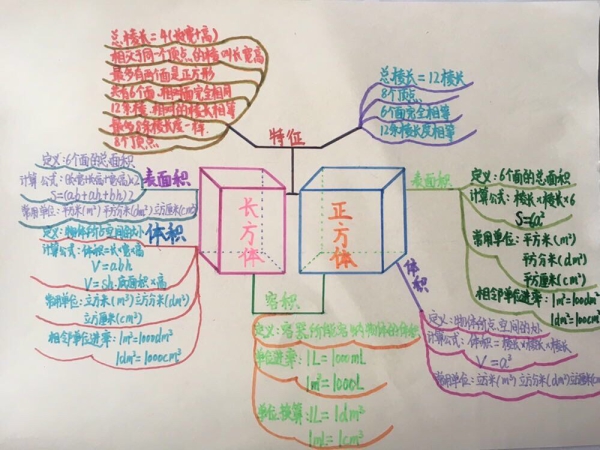 总棱长=4(长+宽+高)
相交于同一个顶点的棱叫长宽高
最多有两个面是正方形
共有6个面,相对面完全相同
12条棱,相对的棱长相等
最少8条棱长度一样.
8个顶点
总棱长=12棱长
8个顶点
6个面完全相等
12条棱长度相等
特征
定义:6个面的总面积
计算公式:(长宽+长高+宽高)×2
S=(ab+ah+bh)2
常用单位:平方米(m²)平方分米(dm²)立方厘米(cm²)
表面积
体积
定义:物体所占空间的大小
计算公式:体积=长×宽×高
V=abh
V=sh.底面积×高
常用单位:立方米(m³)立方分米(dm³)
立方厘米(cm³)
相邻单位进率:1m³=1000dm³
1dm³=1000cm³
长方体
正方体
表面积
定义:6个面的总面积
计算公式:棱长×棱长×6
S=a²
常用单位:平方米(m²)
平方分米(dm²)
平方厘米(cm²)
相邻单位进率:1m²=100dm²
1dm²=100cm²
体积
定义:物体所占空间的大小
计算公式:体积=棱长×棱长×棱长
V=a³
常用单位:立方米(m³)立方分米(dm³)立方厘米(cm³)
容积
定义:容器所能容纳物体的体积
单位进率:1L=1000mL
1m³=1000L
单位换算:1L=1dm³
1mL=1cm³